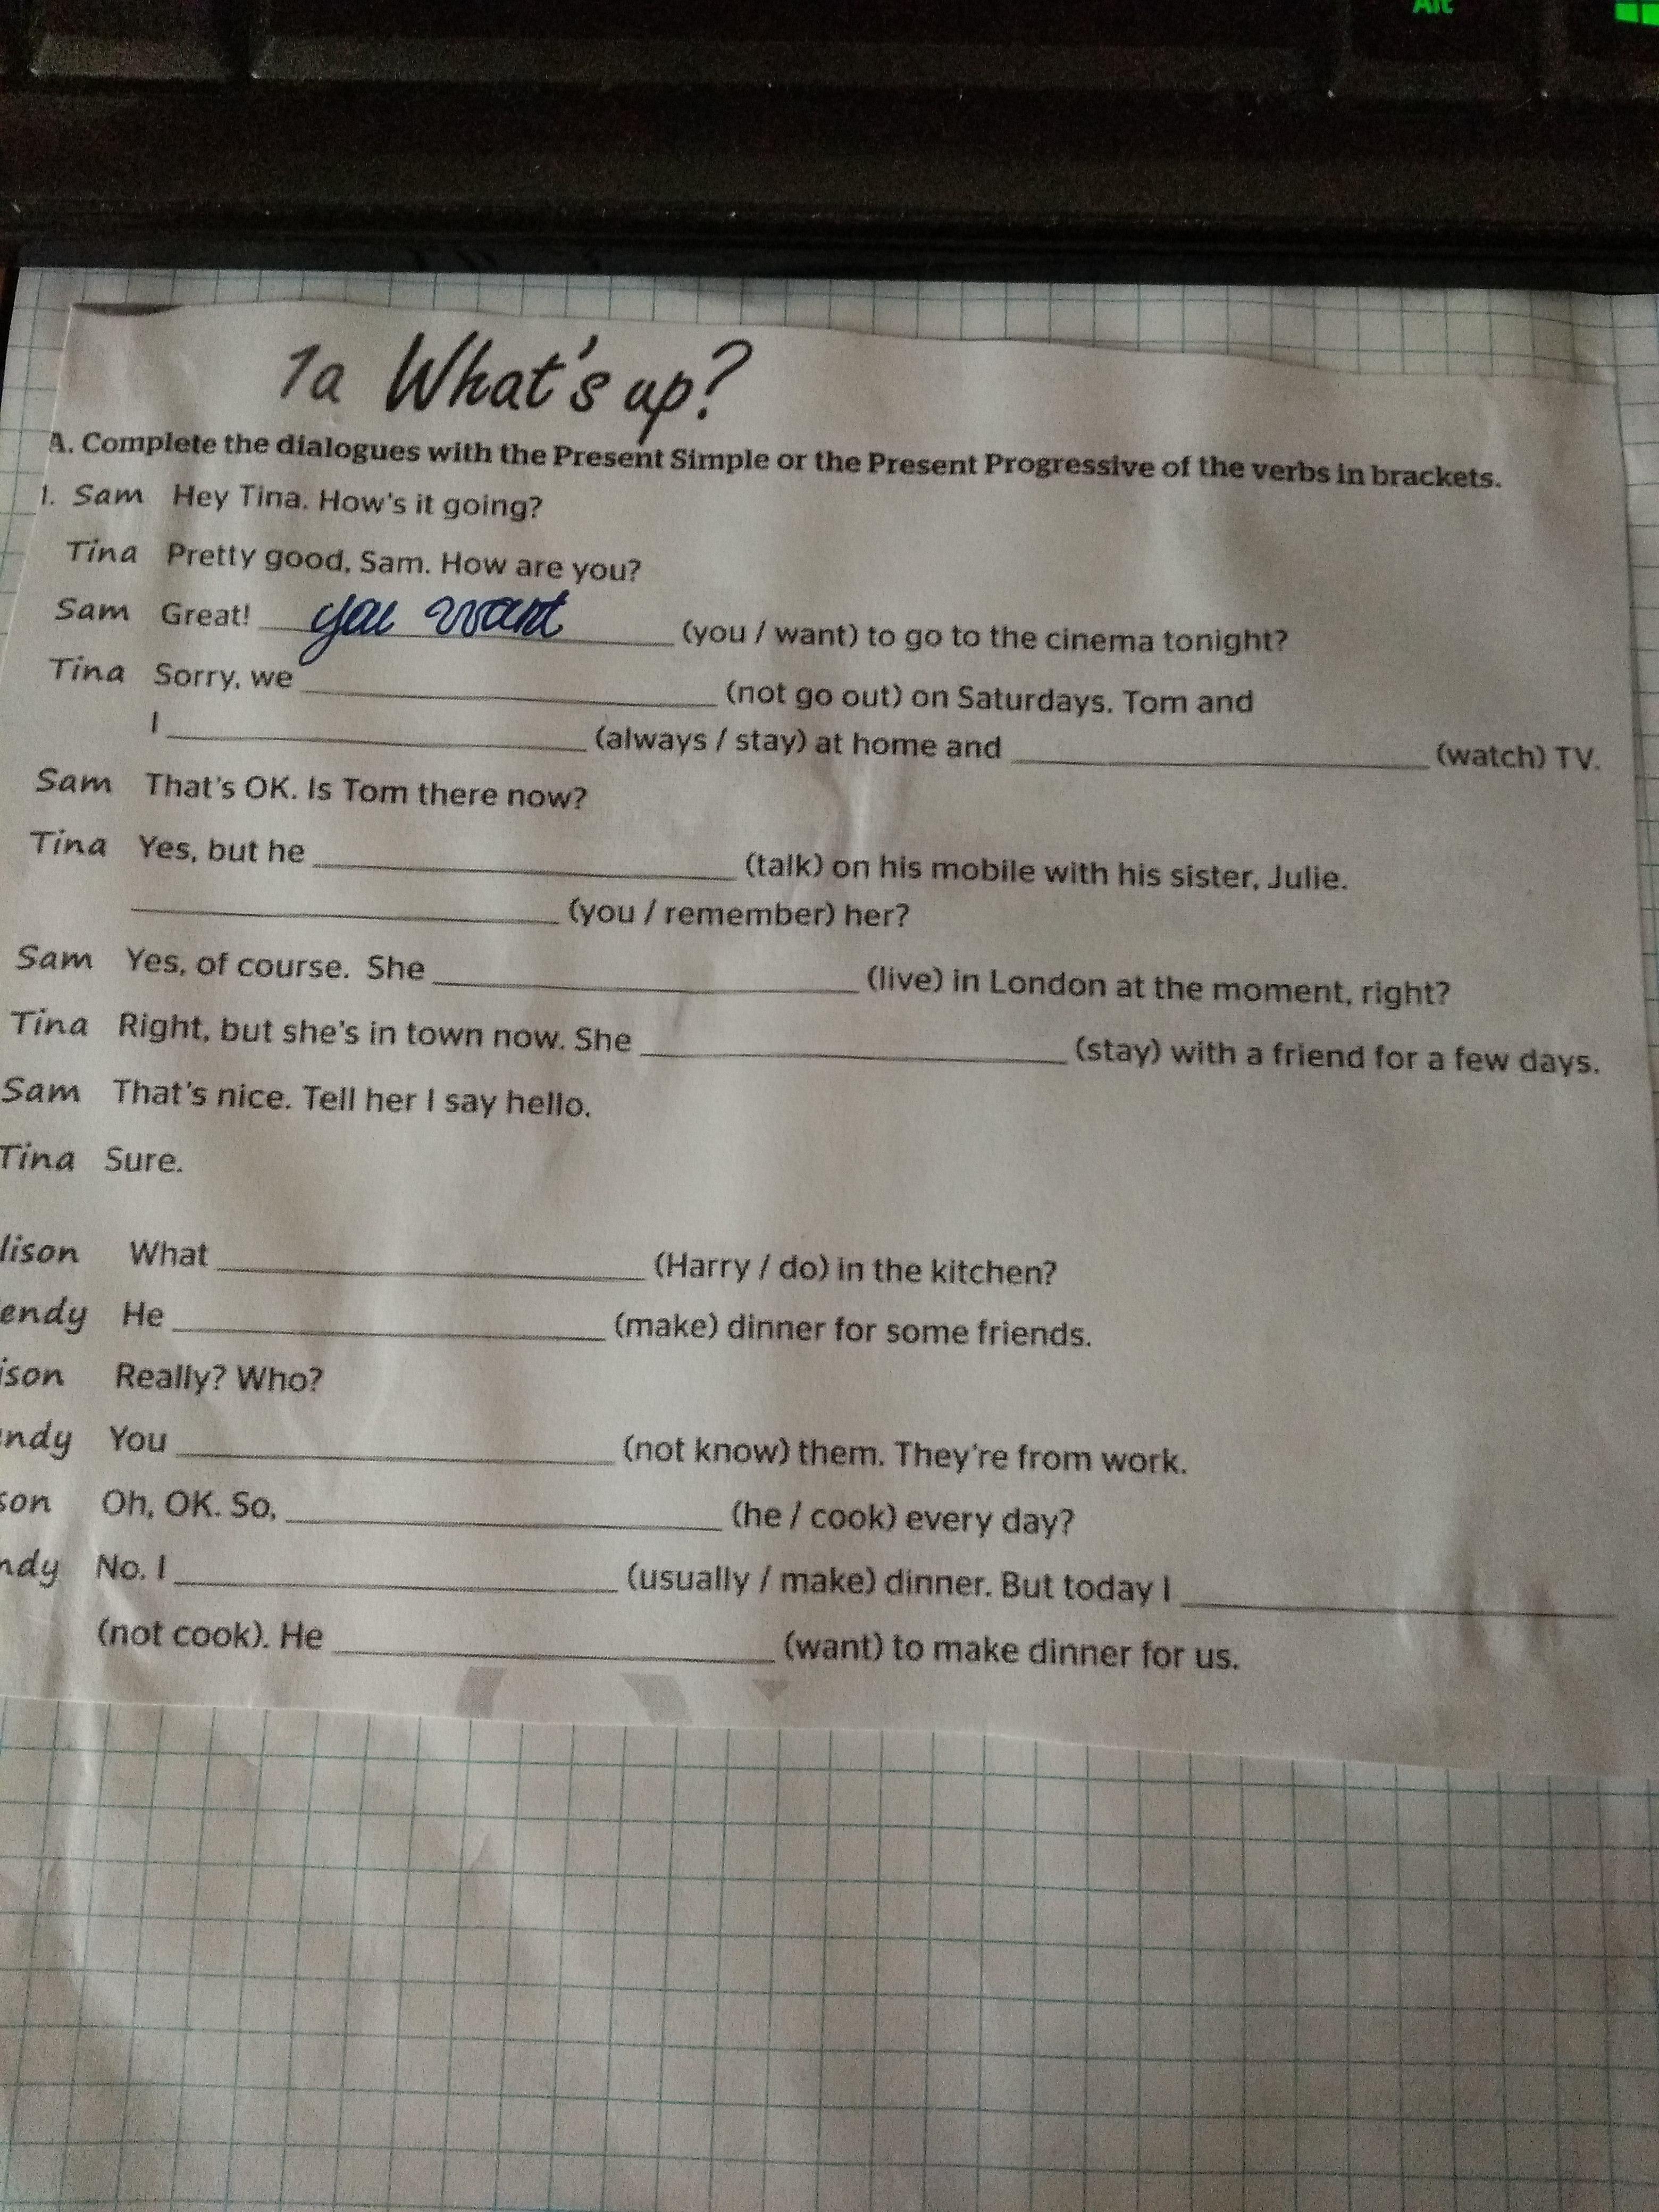 Alt
1a What's up?
A. Complete the dialogues with the Present Simple or the Present Progressive of the verbs in brackets.
1. Sam Hey Tina. How's it going?
Tina Pretty good, Sam. How are you?
Sam Great! you want (you / want) to go to the cinema tonight?
Tina Sorry, we (not go out) on Saturdays. Tom and
I (always / stay) at home and (watch) TV.
Sam That's OK. Is Tom there now?
Tina Yes, but he (talk) on his mobile with his sister, Julie.
(you / remember) her?
Sam Yes, of course. She (live) in London at the moment, right?
Tina Right, but she's in town now. She (stay) with a friend for a few days.
Sam That's nice. Tell her I say hello.
Tina Sure.
lison What (Harry / do) in the kitchen?
endy He (make) dinner for some friends.
ison Really? Who?
ndy You (not know) them. They're from work.
son Oh, OK. So, (he / cook) every day?
ndy No. I (usually / make) dinner. But today I
(not cook). He (want) to make dinner for us.